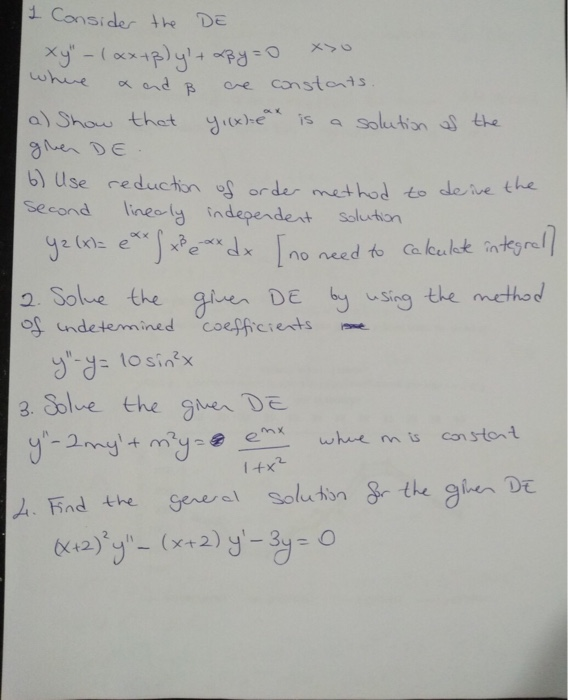 1 Consider the DE
xy" - (αx+β)y' + αβy = 0 x>0
where α and β are constants.
a) Show that y₁(x)=e^αx is a solution of the
given DE.
b) Use reduction of order method to derive the
second linearly independent solution
y₂(x) = e^αx ∫ x^β e^-αx dx [no need to calculate integral]
2. Solve the given DE by using the method
of undetermined coefficients
y" - y = 10 sin²x
3. Solve the given DE
y" - 2my' + m²y = e^mx / 1+x² where m is constant
4. Find the general solution for the given DE
(x+2)²y" - (x+2)y' - 3y = 0